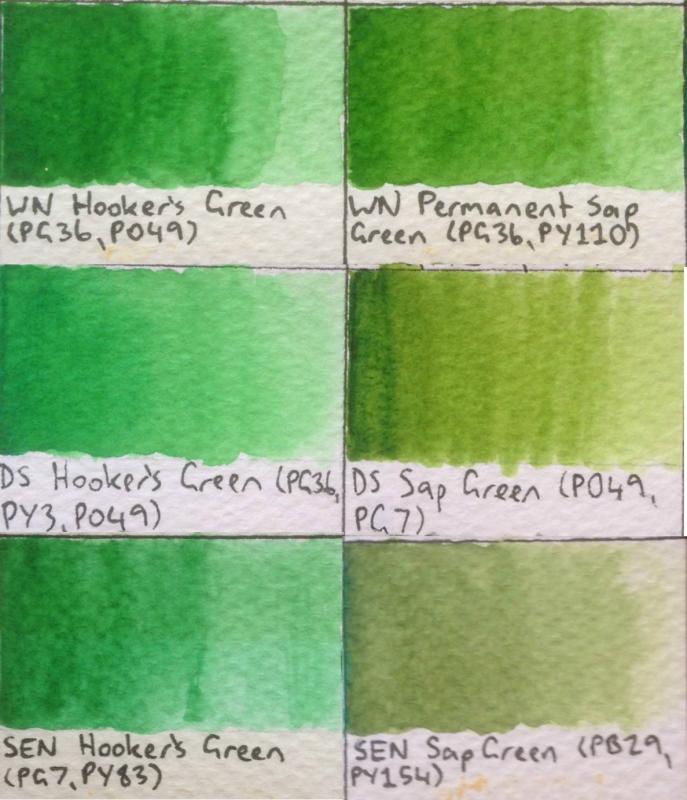 WN Hooker's Green
(PG36, PO49)
WN Permanent Sap
Green (PG36, PY110)
DS Hooker's Green (PG36,
PY3, PO49)
DS Sap Green (PO49,
PG7)
SEN Hooker's Green
(PG7, PY83)
SEN Sap Green (PB29,
PY154)